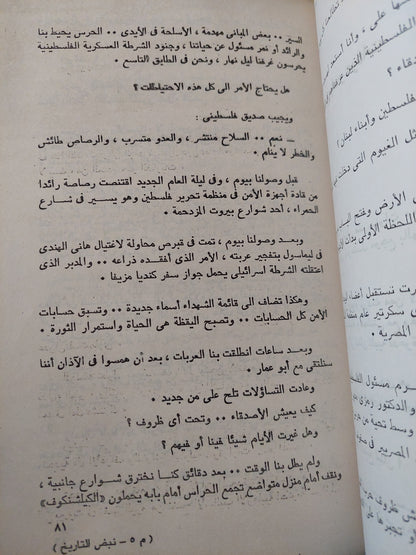 السير .. بعض المبانى مهدمة ، الأسلحة فى الأيدى .. الحرس يحيط بنا
والرائد أبو نمر مسئول عن حياتنا ، وجنود الشرطة العسكرية الفلسطينية
يحرسون غرفنا ليل نهار ، ونحن فى الطابق التاسع .
هل يحتاج الأمر الى كل هذه الاحتياطات ؟
ويجيب صديق فلسطينى :
ــ نعم .. السلاح منتشر ، والعدو متسرب ، والرصاص طائش
والخطر لا ينام .
قبل وصولنا بيوم ، وفى ليلة العام الجديد اقتنصت رصاصة رائدا
من قادة أجهزة الأمن فى منظمة تحرير فلسطين وهو يسير فى شارع
الحمراء ، أحد شوارع بيروت المزدحمة .
وبعد وصولنا بيوم ، تمت فى قبرص محاولة لاغتيال هانى الهندى
فى ليماسول بتفجير عربته ، الأمر الذى أفقده ذراعه .. والمدبر الذى
اعتقلته الشرطة اسرائيلى يحمل جواز سفر كنديا مزيفا .
وهكذا تضاف الى قائمة الشهداء أسماء جديدة .. وتسبق حسابات
الأمن كل الحسابات .. وتصبح اليقظة هى الحياة واستمرار الثورة .
وبعد ساعات انطلقت بنا العربات ، بعد أن همسوا فى الآذان أننا
سنلتقى مع أبو عمار .
وعادت التساؤلات تلح على من جديد .
كيف يعيش الأصدقاء .. وتحت أى ظروف ؟
وهل غيرت الأيام شيئا فينا أو فيهم ؟
ولم يطل بنا الوقت .. بعد دقائق كنا نخترق شوارع جانبية ،
ونقف أمام منزل متواضع تجمع الحراس أمام بابه يحملون «الكلاشنكوف»
٨١
( م ٥ – نبض التاريخ )
على ، وأنا
الفلسطينية الذين
فلسطين وأبناء لبنان ؟
الغيوم التى
الأرض وفتح
اللحظة الأولى بدأت
نستقبل أعضاء
سكرتير عام
المصرية .
مسئول
والدكتور رمزى
وسط تحية من
المصريين فى
ظروف